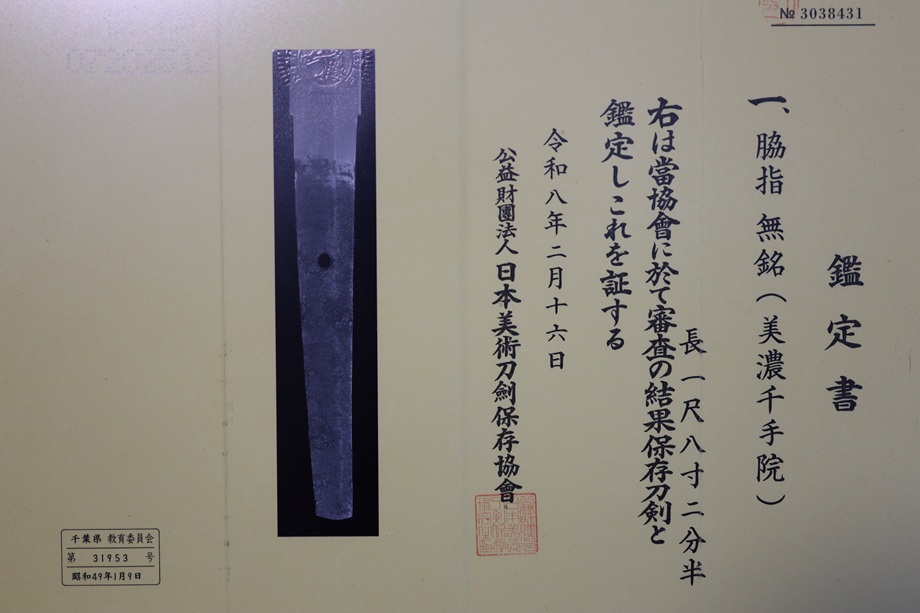 № 3038431
鑑定書
一、脇指 無銘(美濃千手院)
長一尺八寸二分半
右は當協會に於て審査の結果保存刀剣と
鑑定しこれを証する
令和八年二月十六日
公益財團法人 日本美術刀劍保存協會
千葉県 教育委員会
第 31953 号
昭和49年1月9日